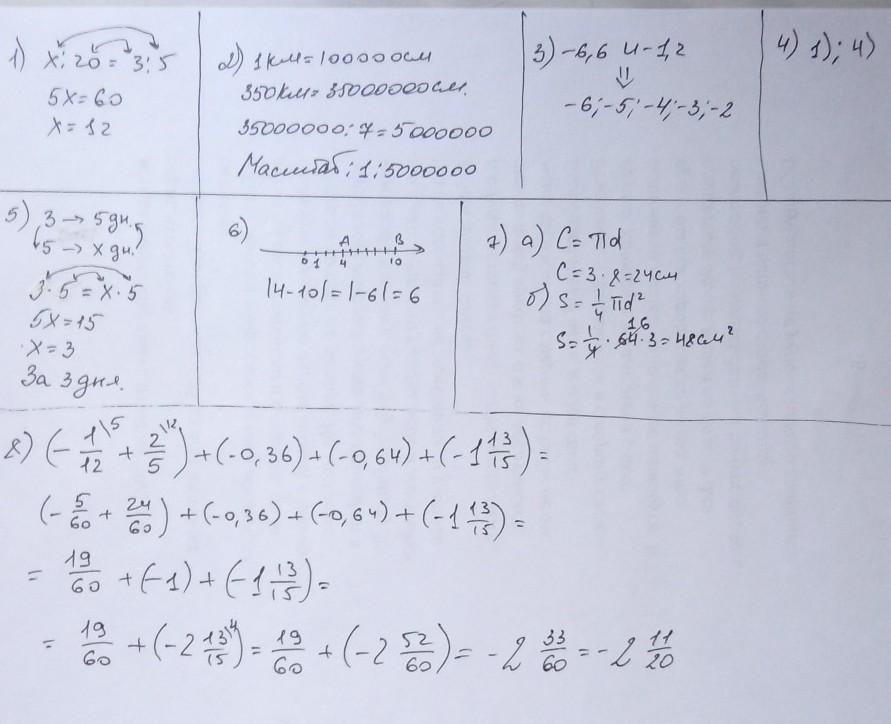 1) x : 20 = 3 : 5
5x = 60
x = 12
2) 1км = 100000см
350км = 35000000см.
35000000 : 7 = 5000000
Масштаб : 1 : 5000000
3) -6,6 и -1,2
⇓
-6; -5; -4; -3; -2
4) 1); 4)
5) 3 → 5 дн.
5 → x дн.
3 · 5 = x · 5
5x = 15
x = 3
За 3 дня.
6)
A B
0 1 4 10
|4-10| = |-6| = 6
7) а) C = πd
C = 3 · 8 = 24см
б) S = 1/4 πd²
S = 1/4 · 64 · 3 = 48см²
16
8) (- 1/12 \5 + 2/5 \12) + (-0,36) + (-0,64) + (-1 13/15) =
(- 5/60 + 24/60) + (-0,36) + (-0,64) + (-1 13/15) =
= 19/60 + (-1) + (-1 13/15) =
= 19/60 + (-2 13/15 \4) = 19/60 + (-2 52/60) = -2 33/60 = -2 11/20